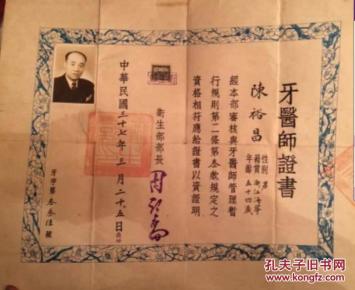 牙醫師證書
陳裕昌
性別 男
籍貫 浙江海寧
年齡 五十四歲
經本部審核與牙醫師管理暫
行規則第二條第叁款規定之
資格相符應給證書以資證明
衛生部部長
中華民國三十七年三月二十五日
牙字第叁叁任號
孔夫子旧书网